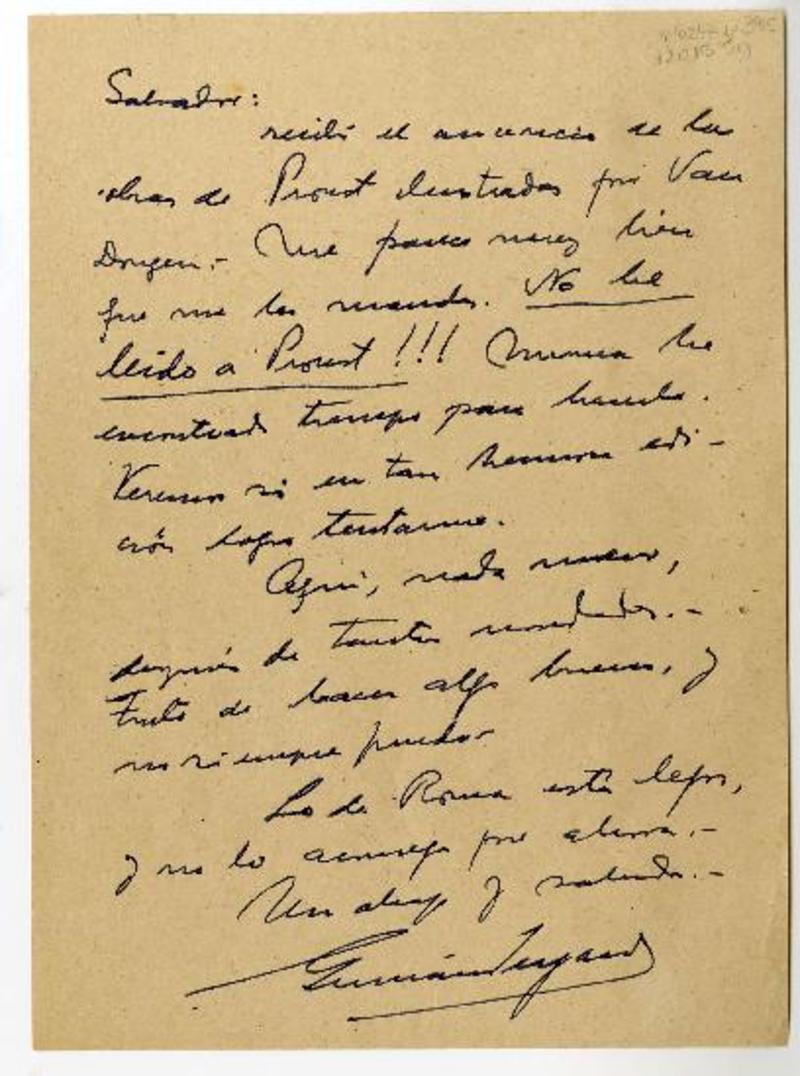 Salvador:
recibí el anuncio de las
obras de Proust ilustradas por Van
Dongen.- Me parece muy bien
que me las mandes. No he
leído a Proust!!! Nunca he
encontrado tiempo para hacerlo.
Veremos si en tan hermosa edi-
ción logro tentarme.
Aquí, nada nuevo,
después de tantas novedades.-
Trato de hacer algo bueno, y
no siempre puedo-
Lo de Roma está lejos,
y no lo aconseja por ahora.-
Un abrazo y saludos.-